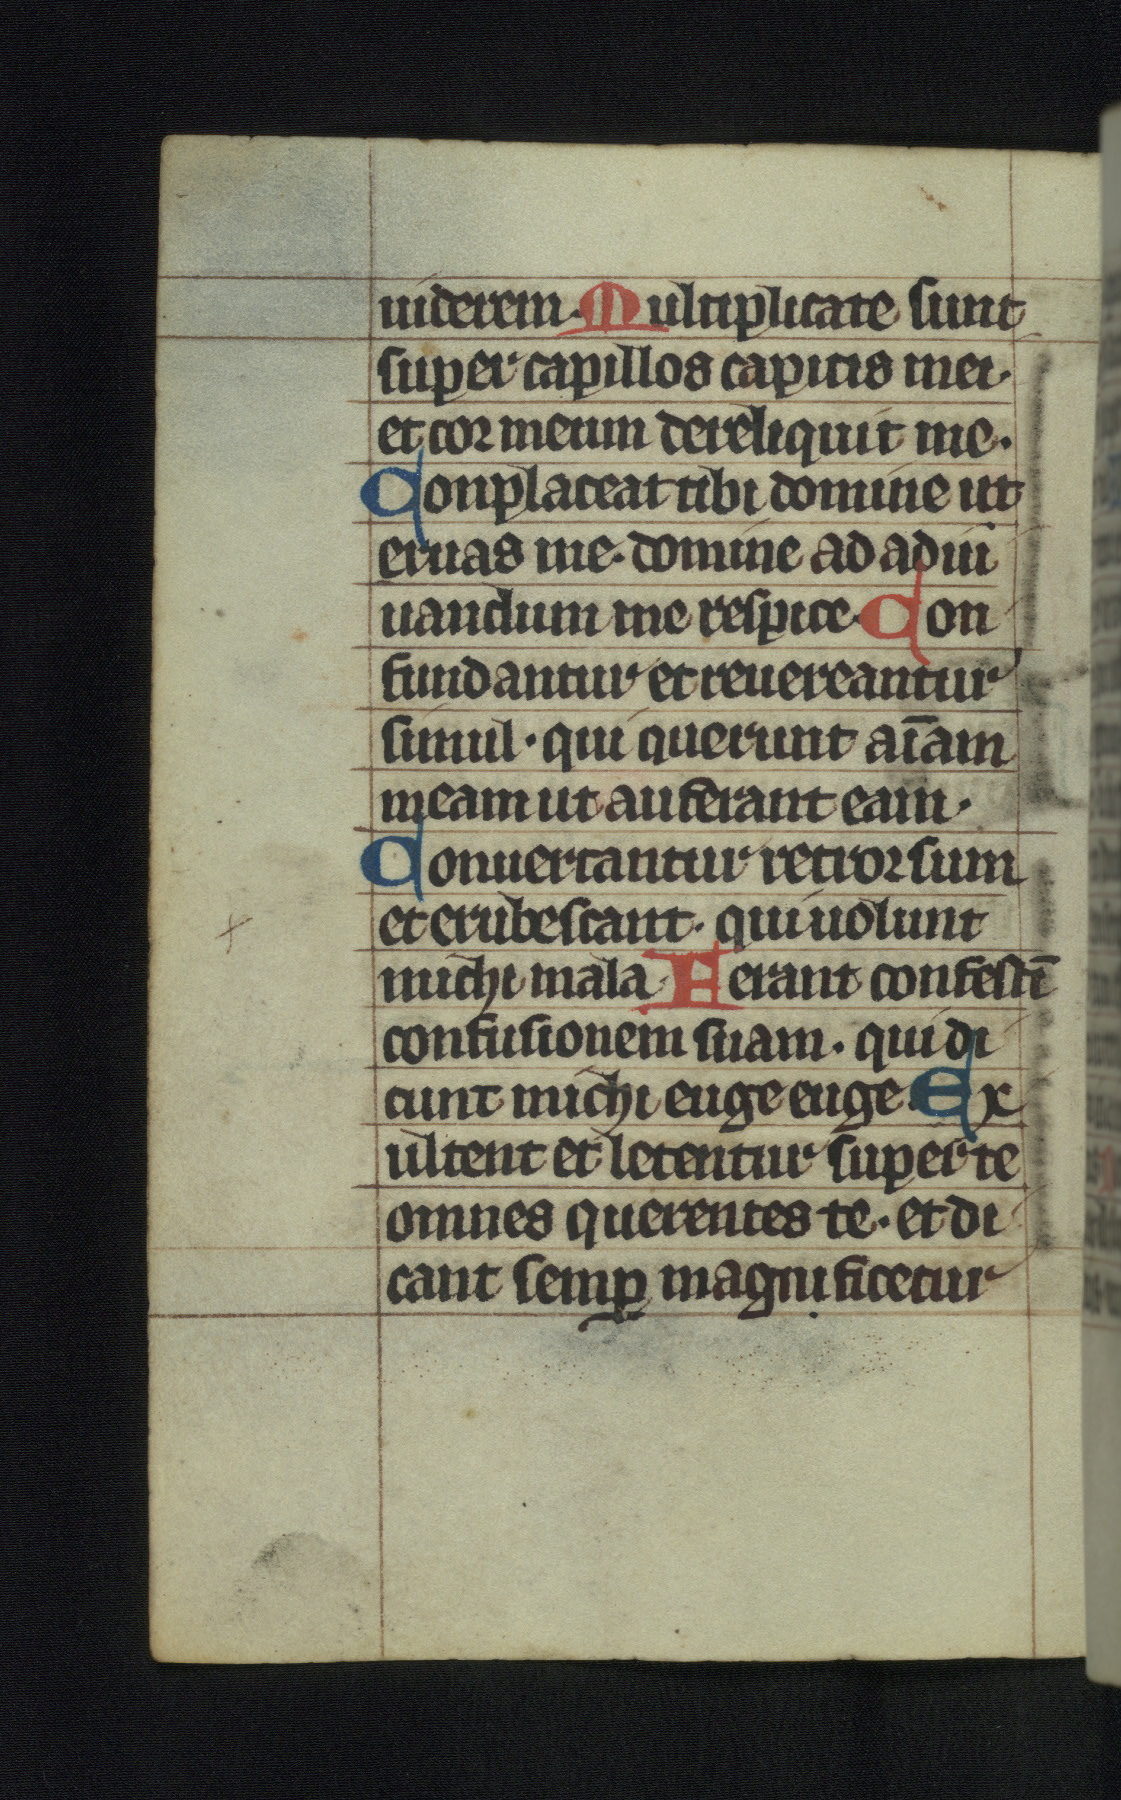 uiderem. Multiplicate sunt
super capillos capitis mei.
et cor meum dereliquit me.
Conplaceat tibi domine ut
eruas me. domine ad adiu
uandum me respice. Con
fundantur et reuereantur
simul. qui querunt aīam
meam ut auferant eam.
Conuertantur retrorsum
et erubescant. qui uolunt
michi mala. Ferant confestī
confusionem suam. qui di
cunt michi euge euge. Ex
ultent et letentur super te
omnes querentes te. et di
cant semꝑ magnificetur